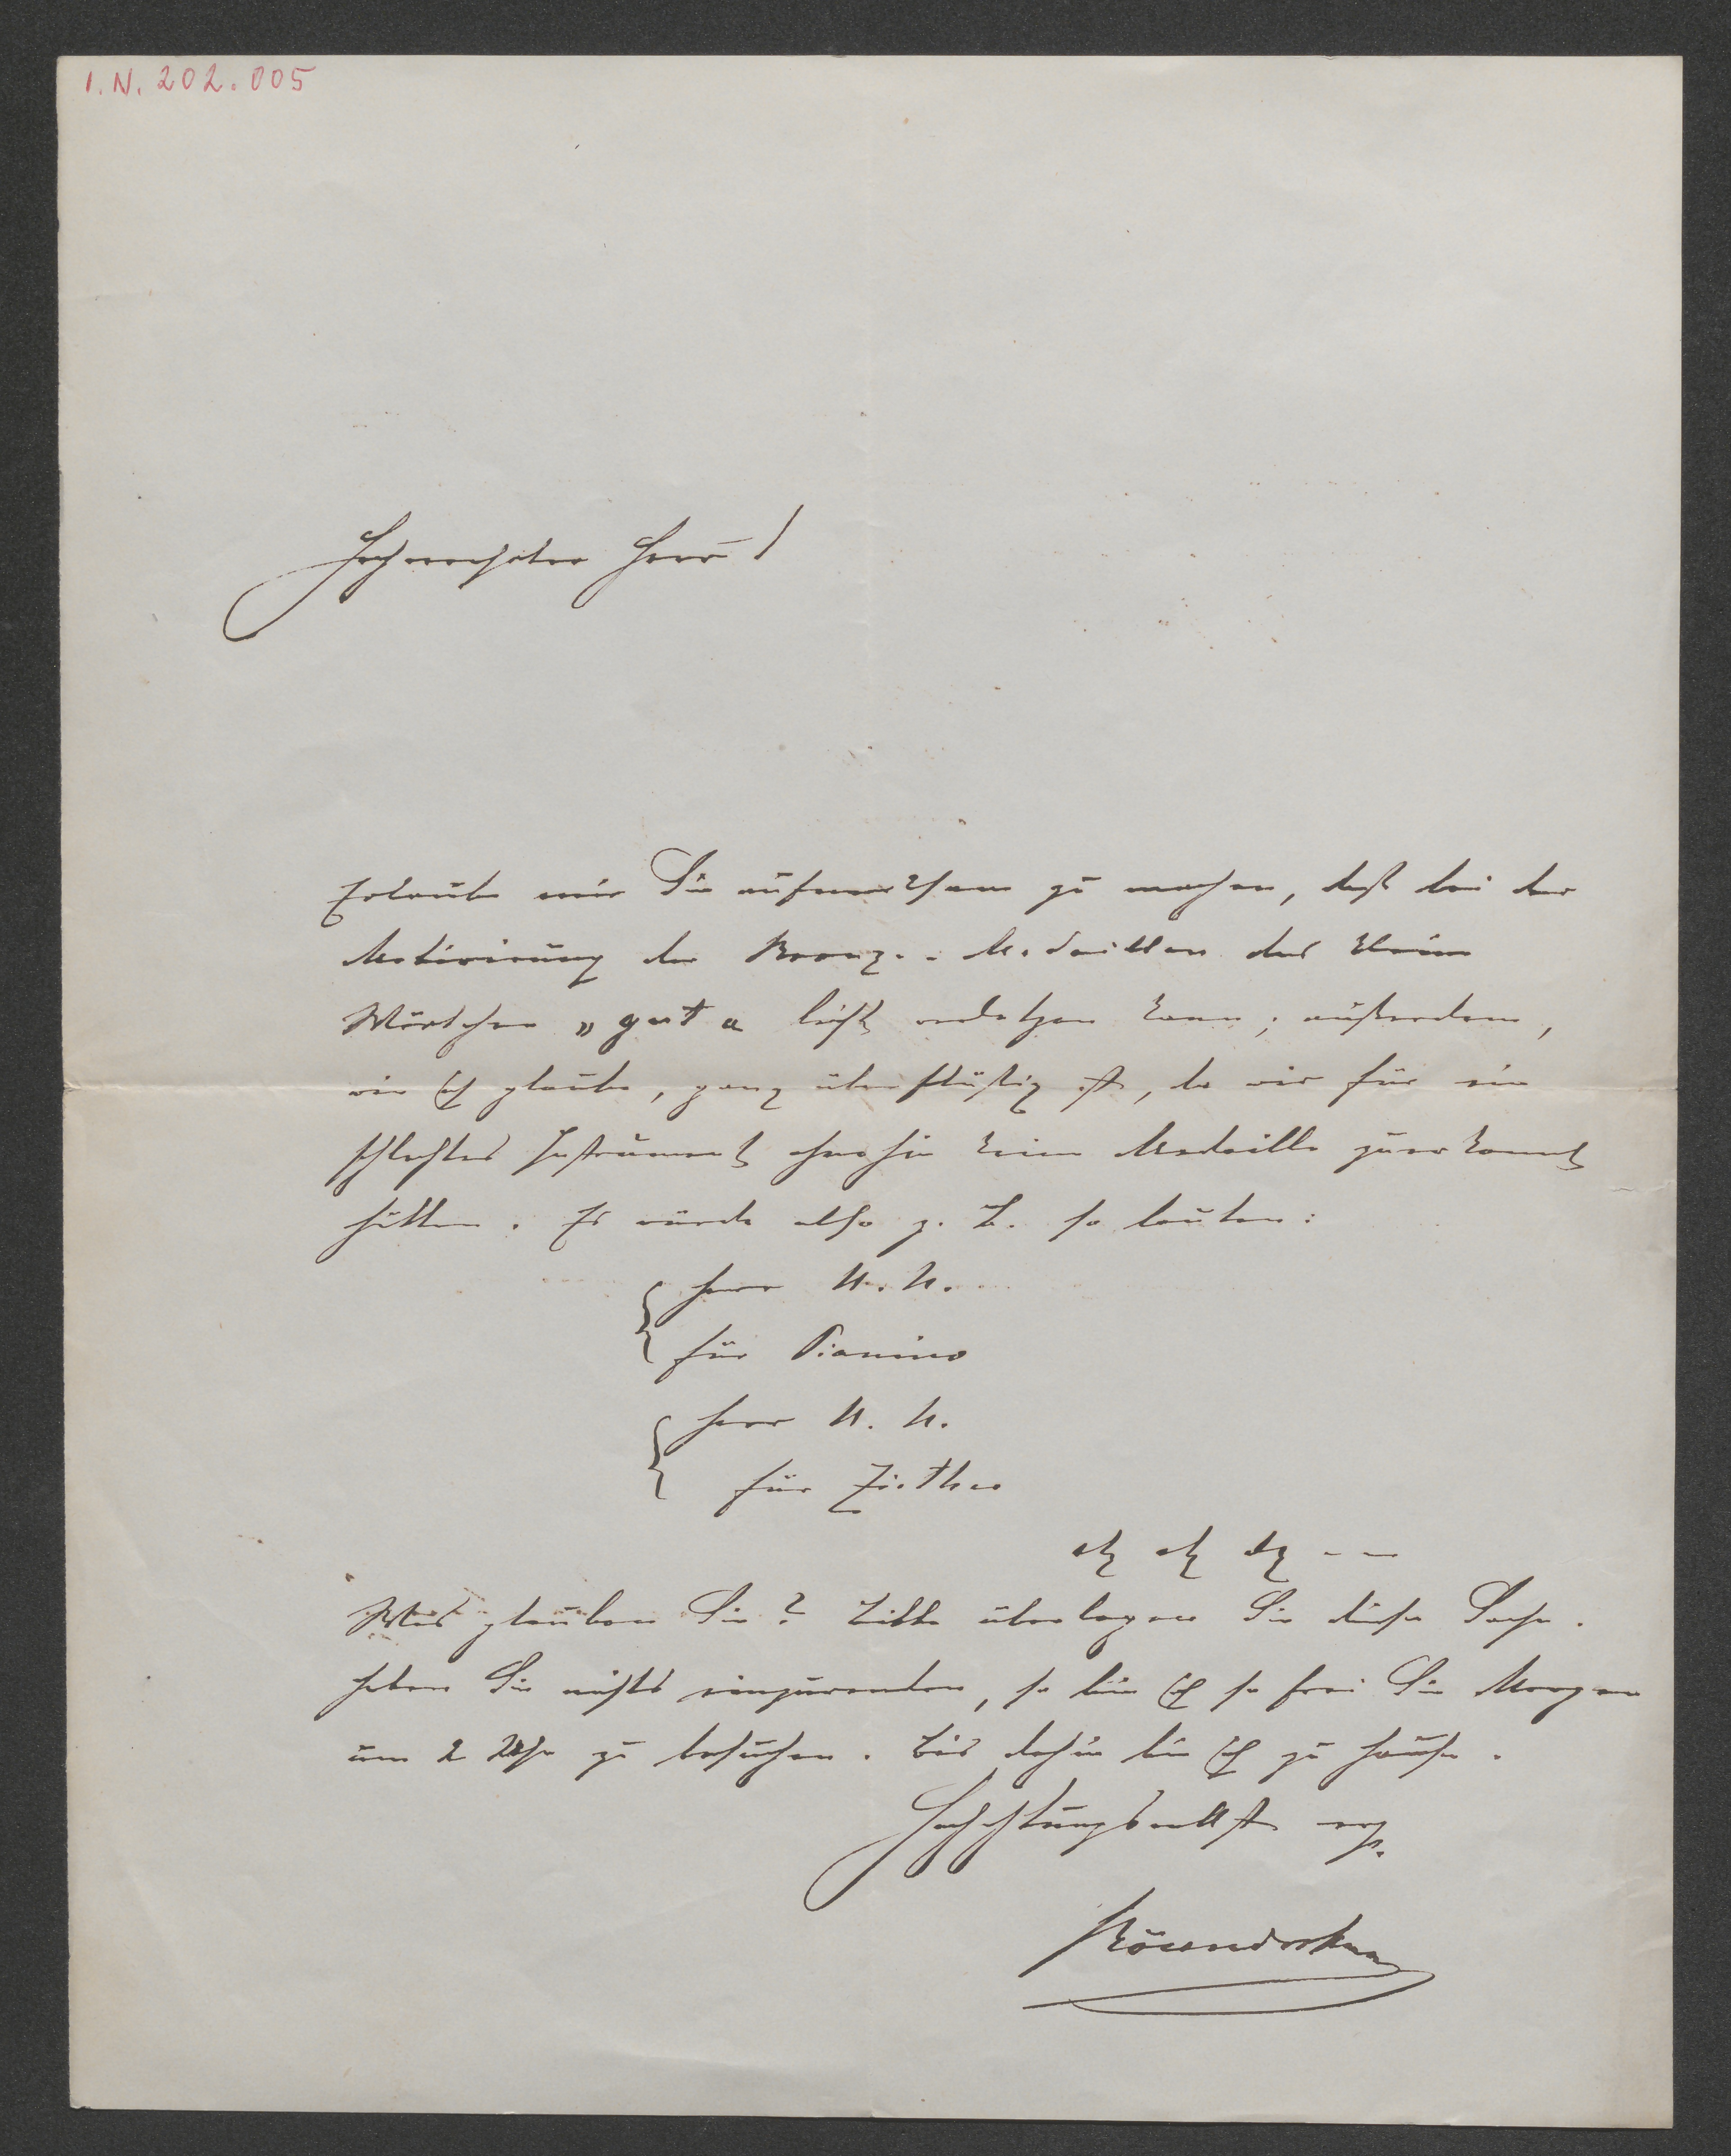 I.N. 202.005
Hochverehrter Herr!
Erlaube mir Sie aufmerksam zu machen, daß bei der
Motivirung der Bronze-Medaillen das kleine
Wörtchen „gut“ leicht verletzen kann; außerdem,
wie ich glaube, ganz überflüßig ist, da wir für ein
schlechtes Instrument ohnehin keine Medaille zuerkannt
hätten. Es würde also z. B. so lauten:
Herr N. N.
für Pianino
Herr N. N.
für Zither
etz etz etz - -
Was glauben Sie? Bitte überlegen Sie diese Sache.
Haben Sie nichts einzuwenden, so bin ich so frei Sie Morgen
um 2 Uhr zu besuchen. Bis dahin bin ich zu Hause.
Hochachtungsvollst erg.
Bösendorfer